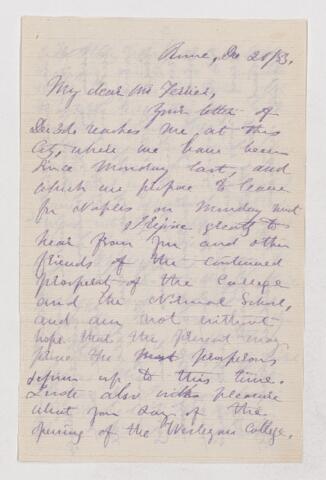 Rome, Dec 28/83.
My dear Mr Ferrier,
Your letter of
Dec 3d. reaches me, at this
City, where we have been
since Monday last, and
which we propose to leave
for Naples on Monday next
I rejoice greatly to
hear from you and other
friends of the continued
prosperity of the College
and the Normal School,
and am not without
hope that the present may
prove the most prosperous
session up to this time.
I note also with pleasure
what you say of the
opening of the Wesleyan College,